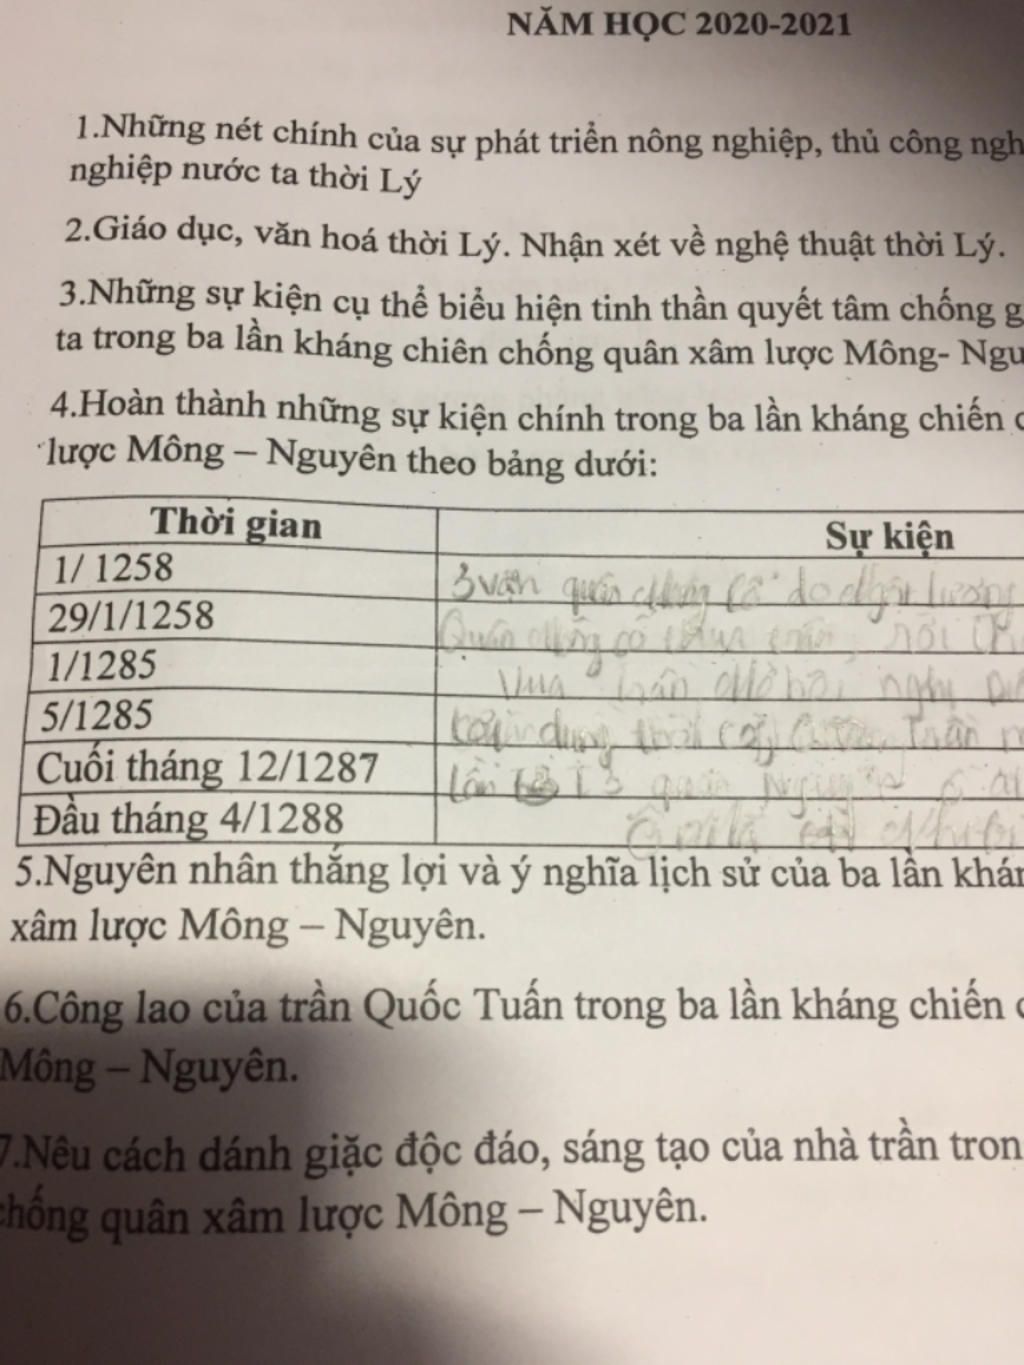 NĂM HỌC 2020-2021
1.Những nét chính của sự phát triển nông nghiệp, thủ công ngh
nghiệp nước ta thời Lý
2.Giáo dục, văn hoá thời Lý. Nhận xét về nghệ thuật thời Lý.
3.Những sự kiện cụ thể biểu hiện tinh thần quyết tâm chống g
ta trong ba lần kháng chiên chống quân xâm lược Mông- Ngu
4.Hoàn thành những sự kiện chính trong ba lần kháng chiến c
lược Mông – Nguyên theo bảng dưới:
Thời gian Sự kiện
1/ 1258 3 vạn quân
29/1/1258 Quân
1/1285 Vua Trần
5/1285
Cuối tháng 12/1287 lần quân Nguyên
Đầu tháng 4/1288
5.Nguyên nhân thắng lợi và ý nghĩa lịch sử của ba lần khán
xâm lược Mông – Nguyên.
6.Công lao của trần Quốc Tuấn trong ba lần kháng chiến c
Mông – Nguyên.
7.Nêu cách dánh giặc độc đáo, sáng tạo của nhà trần tron
chống quân xâm lược Mông – Nguyên.